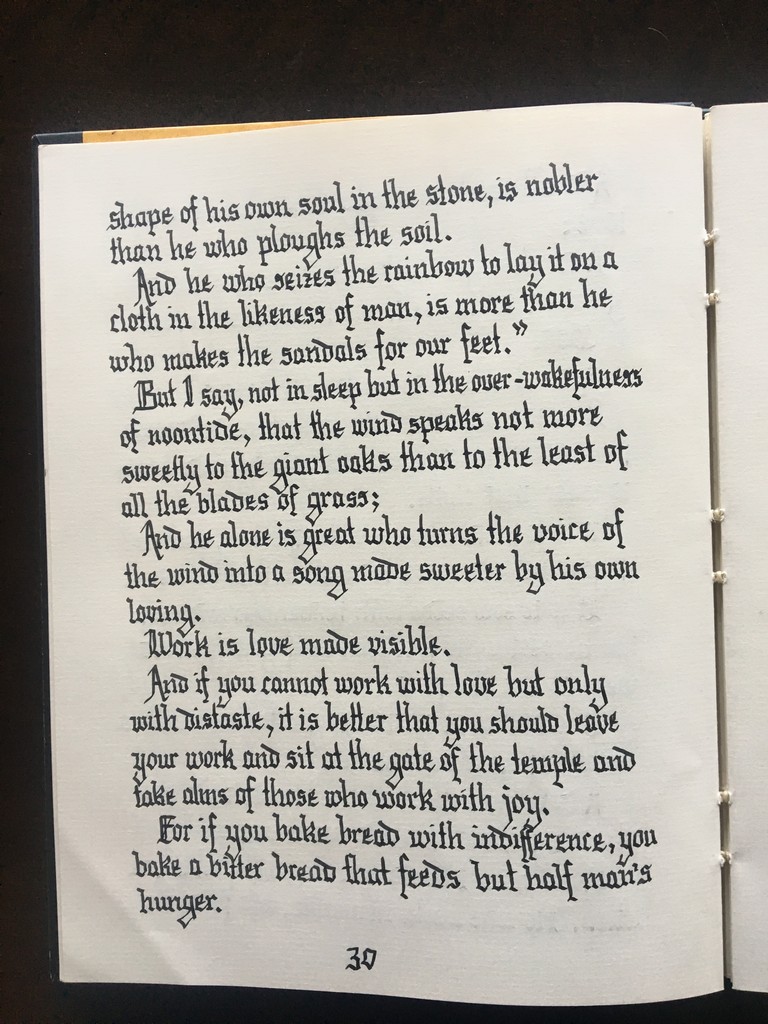 shape of his own soul in the stone, is nobler
than he who ploughs the soil.
And he who seizes the rainbow to lay it on a
cloth in the likeness of man, is more than he
who makes the sandals for our feet."
But I say, not in sleep but in the over-wakefulness
of noontide, that the wind speaks not more
sweetly to the giant oaks than to the least of
all the blades of grass;
And he alone is great who turns the voice of
the wind into a song made sweeter by his own
loving.
Work is love made visible.
And if you cannot work with love but only
with distaste, it is better that you should leave
your work and sit at the gate of the temple and
take alms of those who work with joy.
For if you bake bread with indifference, you
bake a bitter bread that feeds but half man's
hunger.
30